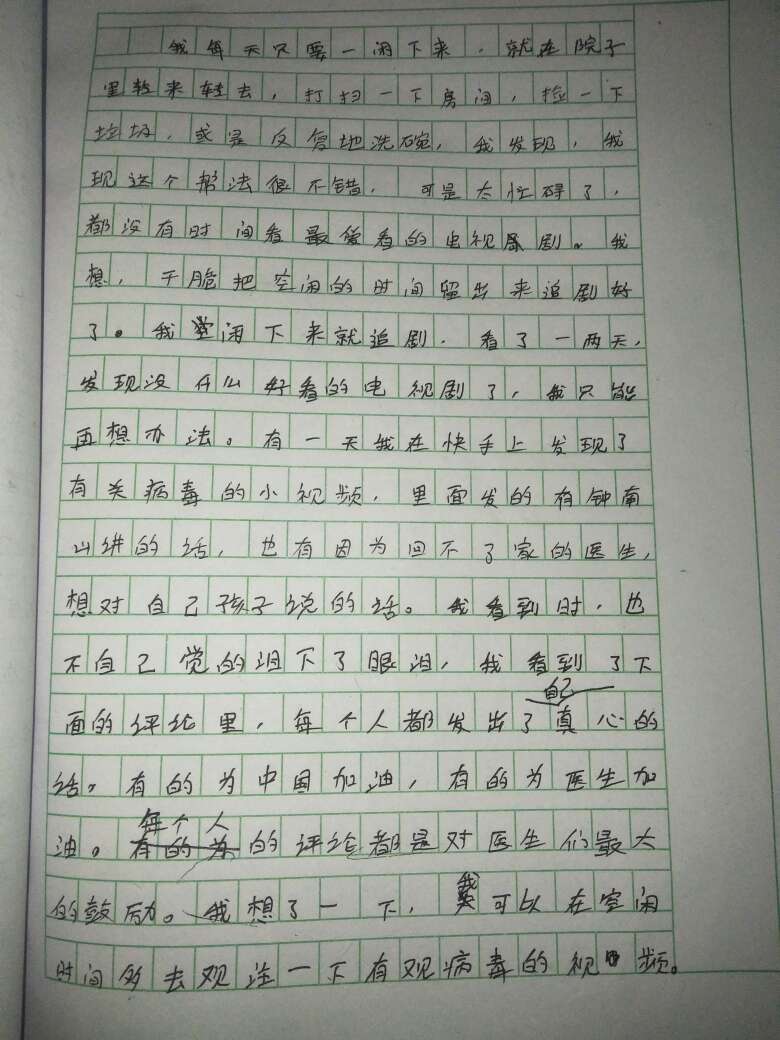 我每天只要一闲下来，就在院子
里转来转去，打扫一下房间，捡一下
垃圾，或是反复地洗碗，我发现，我
现这个帮法很不错，可是太忙碍了，
都没有时间看最爱看的电视剧。我
想，干脆把空闲的时间留出来追剧好
了。我空闲下来就追剧，看了一两天，
发现没什么好看的电视剧了，我只能
再想办法。有一天我在快手上发现了
有关病毒的小视频，里面发的有钟南
山讲的话，也有因为回不了家的医生，
想对自己孩子说的话。我看到时，也
不自己觉的泪下了眼泪，我看到了下
面的评论里，每个人都发出了自己真心的
话。有的为中国加油，有的为医生加
油。每个人的评论都是对医生们最大
的鼓励。我想了一下，我可以在空闲
时间多去观注一下有观病毒的视频。